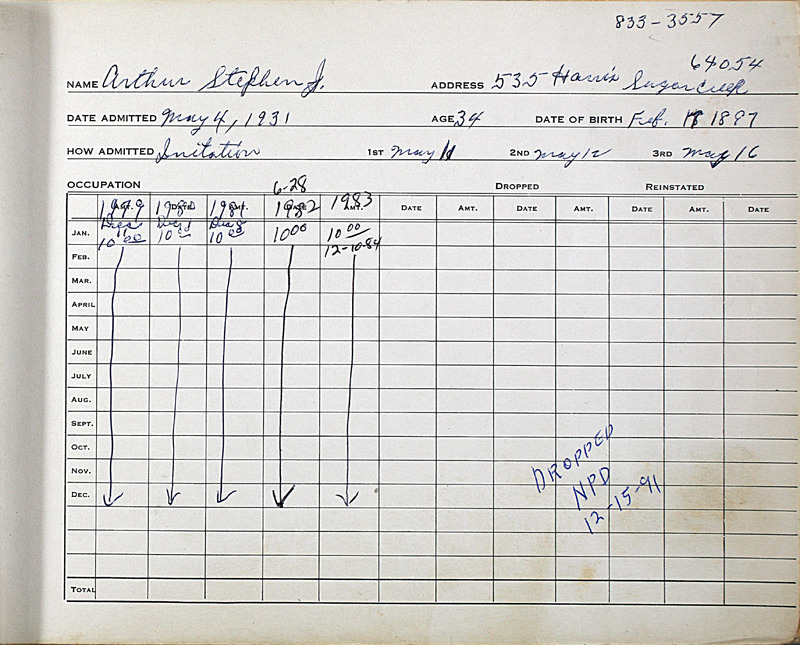 833-3557
64054
NAME Arthur Stephen J. ADDRESS 535 Harris Sugarcreek
DATE ADMITTED May 4, 1931 AGE 34 DATE OF BIRTH Feb. 1897
HOW ADMITTED Initation 1ST May 11 2ND May 12 3RD May 16
OCCUPATION 6-28 DROPPED REINSTATED
1979 1980 1981 1982 1983 DATE AMT. DATE AMT. DATE AMT. DATE
JAN. Dues 10.00 Dues 10.00 Dues 10.00 10.00 10.00
FEB. 12-10-84
MAR.
APRIL
MAY
JUNE
JULY
AUG.
SEPT.
OCT.
NOV.
DEC.
DROPPED
NPD
12-15-91
TOTAL